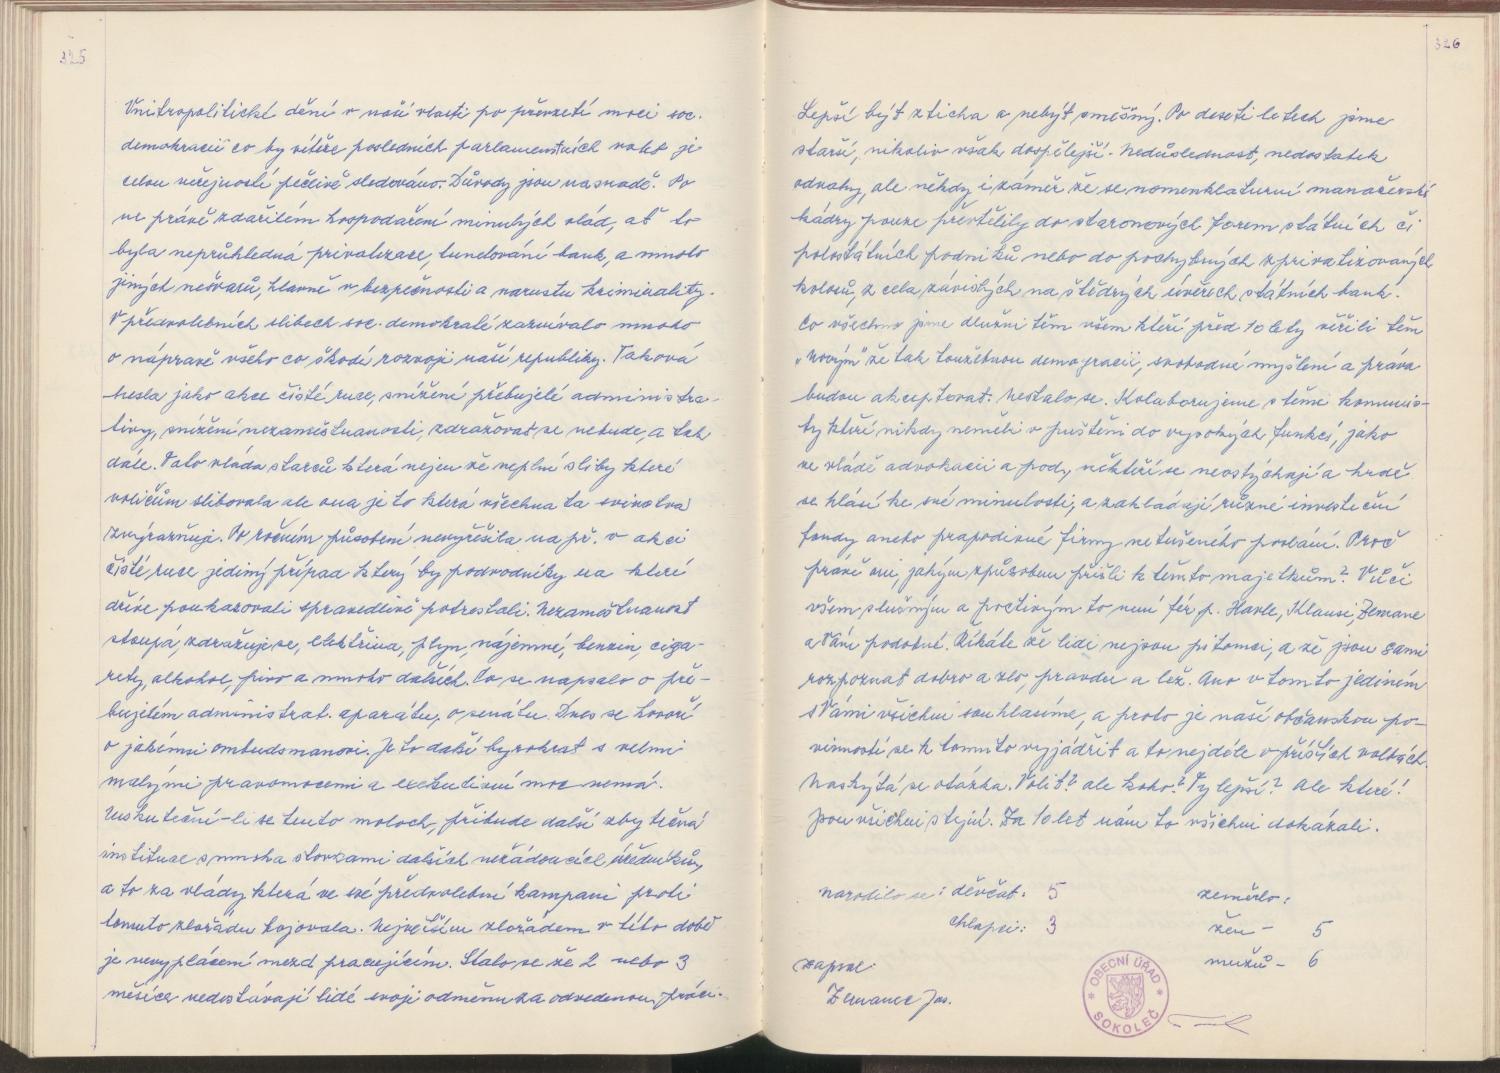 325
Vnitropolitické dění v naší vlasti po převzetí moci soc.
demokracií co by vítěze posledních parlamentních voleb je
celou veřejností pečlivě sledováno. Důvody jsou nasnadě. Po
ne právě zdařilém hospodaření minulých vlád, ať to
byla neprůhledná privatizace, tunelování bank, a mnoho
jiných nešvarů, hlavně v bezpečnosti a narustu kriminality.
V předvolebních slibech soc. demokratů zaznívalo mnoho
o nápravě všeho co škodí rozvoji naší republiky. Taková
hesla jako akce čisté ruce, snížení přebujelé administra-
tivy, snížení nezaměstnanosti, zdražovat se nebude, a tak
dále. Tato vláda starců která nejen že neplní sliby které
voličům slibovala ale ona je to která všechna ta svinstva
zvýrazňuje. Po ročním působení nevyřešila na př. v akci
čisté ruce jediný případ který by podvodníky na které
dříve poukazovali spravedlivě potrestali. Nezaměstnanost
stoupá, zdražuje se, elektřina, plyn, nájemné, benzin, ciga-
rety, alkohol, pivo a mnoho dalších. Co se napsalo o pře-
bujelém administrat. aparátu, o senátu. Dnes se hovoří
o jakémsi ombudsmanovi. Je to další byrokrat s velmi
malými pravomocemi a exekutivní moc nemá.
Uskuteční-li se tento moloch, přibude další zbytečná
instituce s mnoha stovkami dalších nežádoucích úředníků,
a to za vlády která ve své předvolební kampani proti
tomuto zlořádu bojovala. Největším zlořádem v této době
je nevyplácení mezd pracujícím. Stalo se že 2 nebo 3
měsíce nedostávají lidé svoji odměnu za odvedenou práci.
326
Lepší být zticha a nebýt směšný. Po deseti letech jsme
starší, nikoliv však dospělejší. Nedůslednost, nedostatek
odvahy, ale někdy i záměr že se nomenklaturní manažerské
kádry pouze převtělily do staronových forem státních či
polostátních podniků nebo do pochybných zprivatizovaných
kolosů, z cela závislých na štědrých úvěrech státních bank.
Co všechno jsme dlužni těm všem kteří před 10 lety věřili těm
„Novým" že tak toužebnou demogracii, svobodné myšlení a práva
budou akceptovat. Nestalo se. Kolaborujeme s těmi komunis-
ty kteří nikdy neměli v puštěni do vysokých funkcí, jako
ve vládě advokacii a pody, někteří se neostýchají a hrdě
se hlásí ke své minulosti, a zakládají různé investiční
fondy aneb prapodivné firmy netušeného poslání. Proč
právě oni jakým způsobem přišli k těmto majetkům? Vůči
všem slušným a poctivým to není fér p. Havle, Klausi, Zemane
a Vám podobné. Říkáte že lidi nejsou pitomci, a že jsou sami
rozpoznat dobro a zlo, pravdu a lež. Ano v tomto jediném
s Vámi všichni souhlasíme, a proto je naší občanskou po-
vinností se k tomuto vyjádřit a to nejdéle v příštích volbách.
Naskýtá se otázka. Volit? ale koho? Ty lepší? Ale které!
Jsou všichni stejní. Za 10 let nám to všichni dokázali.
narodilo se: děvčat: 5 zemřelo:
chlapci: 3 žen - 5
mužů - 6
zapsal
Zemanec Jos.
OBECNÍ ÚŘAD
* SOKOLEČ *